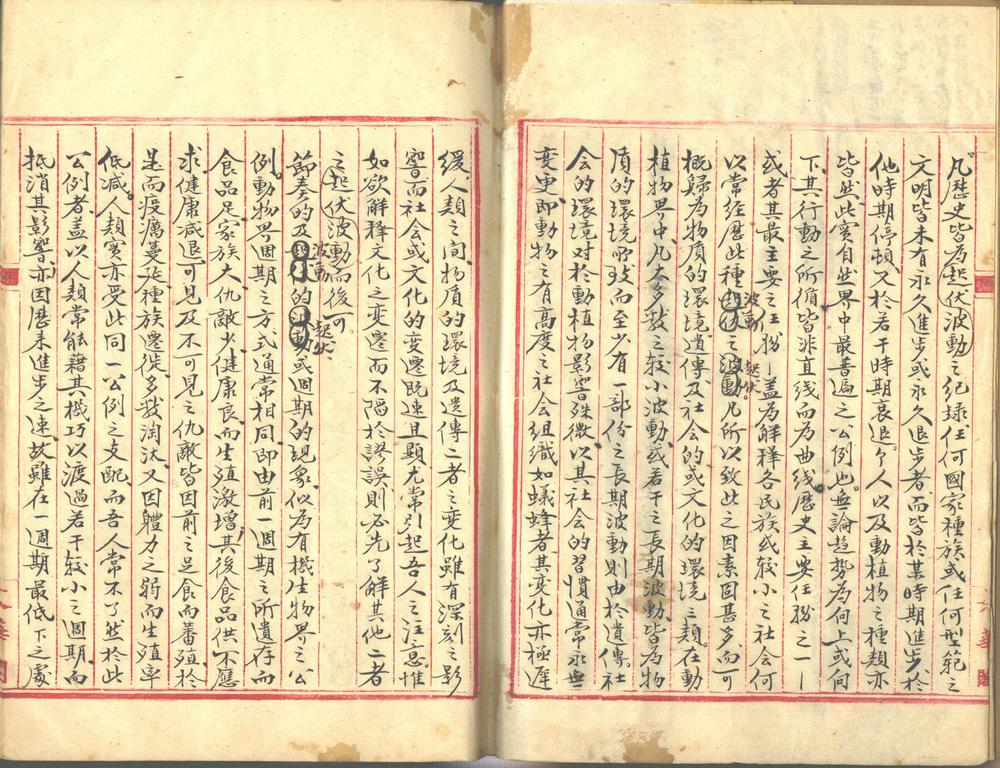 凡歷史皆為起伏波動之紀錄任何國家種族或任何型範之
文明皆未有永久進步或永久退步者而皆於某時期進步於
他時期停頓又於若干時期衰退个人以及動植物之種類亦
皆然此實自然界中最普遍之公例也無論趨勢為向上或向
下其行動之所循皆非直线而為曲线歷史主要任務之一—
或者其最主要之任務—蓋為解釋各民族或較小之社會何
以常經歷此種波動起伏之起伏波動凡所以致此之因素固甚多而可
概歸為物質的環境遺傳及社會的或文化的環境三類在動
植物界中凡大多數之較小波動或若干之長期波動皆為物
質的環境所致而至少有一部份之長期波動則由於遺傳社
会的環境對於動植物影響殊微以其社会的習慣通常永無
变更即動物之有高度之社会組織如蟻蜂者其変化亦極遲
緩人類之间物质的環境及遺傳二者之变化雖有深刻之影
響而社会或文化的变遷既速且顯尤常引起吾人之注意惟
如欲解释文化之变遷而不陷於謬誤則必先了解其他二者
之起伏波動而後可
節奏的及波動的起伏或週期的現象似为有機生物界之公
例動物界週期之方式通常相同即由前一週期之所遺存而
食品足家族大仇敵少健康良而生殖激增其後食品供不應
求健康減退可見及不可見之仇敵皆因前之足食而蕃殖於
是而疫癘蔓延種族遷徙多我淘汰又因體力之弱而生殖率
低減人類實亦受此同一公例之支配而吾人常不了然於此
公例者蓋以人類常能藉其機巧以渡過若干較小之週期而
抵消其影響亦因歷来進步之速故雖在一週期最低下之處